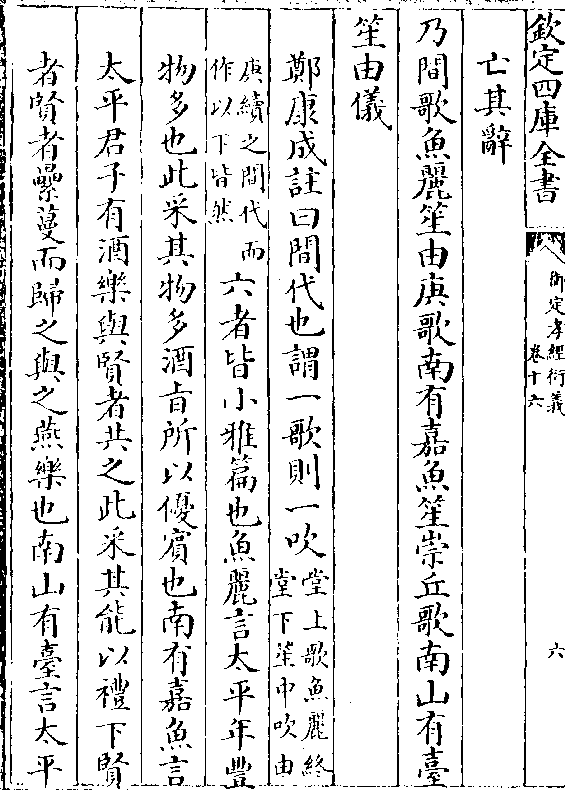 欽定四庫全書
御定孝經衍義
卷十六
六
亡其辭
乃間歌魚麗笙由庚歌南有嘉魚笙崇丘歌南山有臺
笙由儀
鄭康成註曰間代也謂一歌則一吹
堂上歌魚麗終
堂下笙中吹由
庚續之間代而
作以下皆然
六者皆小雅篇也魚麗言太平年豐
物多也此采其物多酒旨所以優賓也南有嘉魚言
太平君子有酒樂與賢者共之此采其能以禮下賢
者賢者纍蔓而歸之與之燕樂也南山有臺言太平